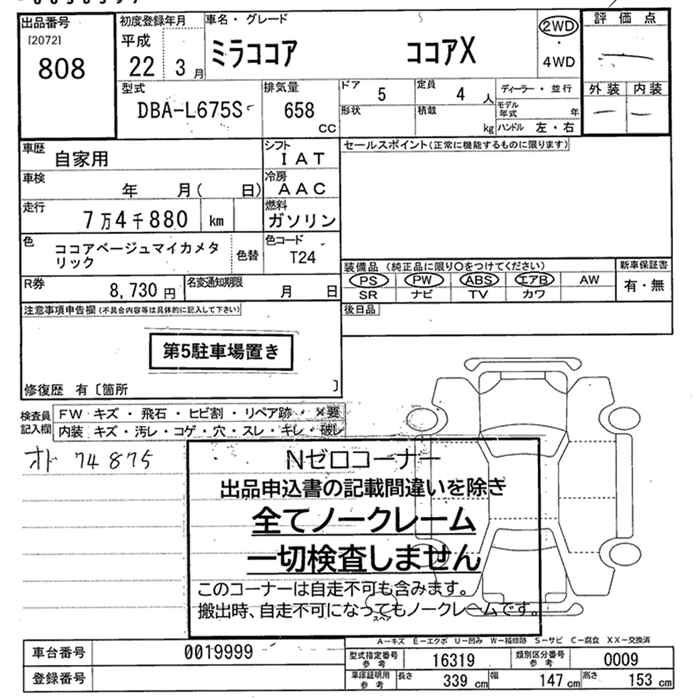 出品番号
[2072]
808
初度登録年月
平成
22 3 月
車名・グレード
ミラココア ココアX
2WD
・
4WD
評価点
外装 内装
型式
DBA-L675S
排気量
658
CC
ドア 5
定員 4 人
形状
積載 kg
ディーラー・並行
モデル年式 年
ハンドル 左・右
車歴
自家用
シフト
IAT
車検
年 月( 日)
冷房
AAC
走行
7万4千880 km
燃料
ガソリン
色
ココアベージュマイカメタ
リック
色替
色コード
T24
R券
8,730 円
名変通知期限
月 日
セールスポイント(正常に機能するものに限ります)
装備品 (純正品に限り○をつけてください)
PS PW ABS エアB AW
SR ナビ TV カワ
新車保証書
有・無
後日品
注意事項申告欄(不具合内容等は具体的に記入して下さい)
第5駐車場置き
修復歴 有〔箇所 〕
検査員
記入欄
FW キズ・飛石・ヒビ割・リペア跡・×要
内装 キズ・汚レ・コゲ・穴・スレ・キレ・破レ
オド 74875
Nゼロコーナー
出品申込書の記載間違いを除き
全てノークレーム
一切検査しません
このコーナーは自走不可も含みます。
搬出時、自走不可になってもノークレームです。
スペア
A-キズ E-エクボ U-凹み W-補修跡 S-サビ C-腐食 XX-交換済
車台番号
0019999
登録番号
型式指定番号
参考
16319
類別区分番号
参考
0009
車庫証明用
参考
長さ 339 cm
幅 147 cm
高さ 153 cm